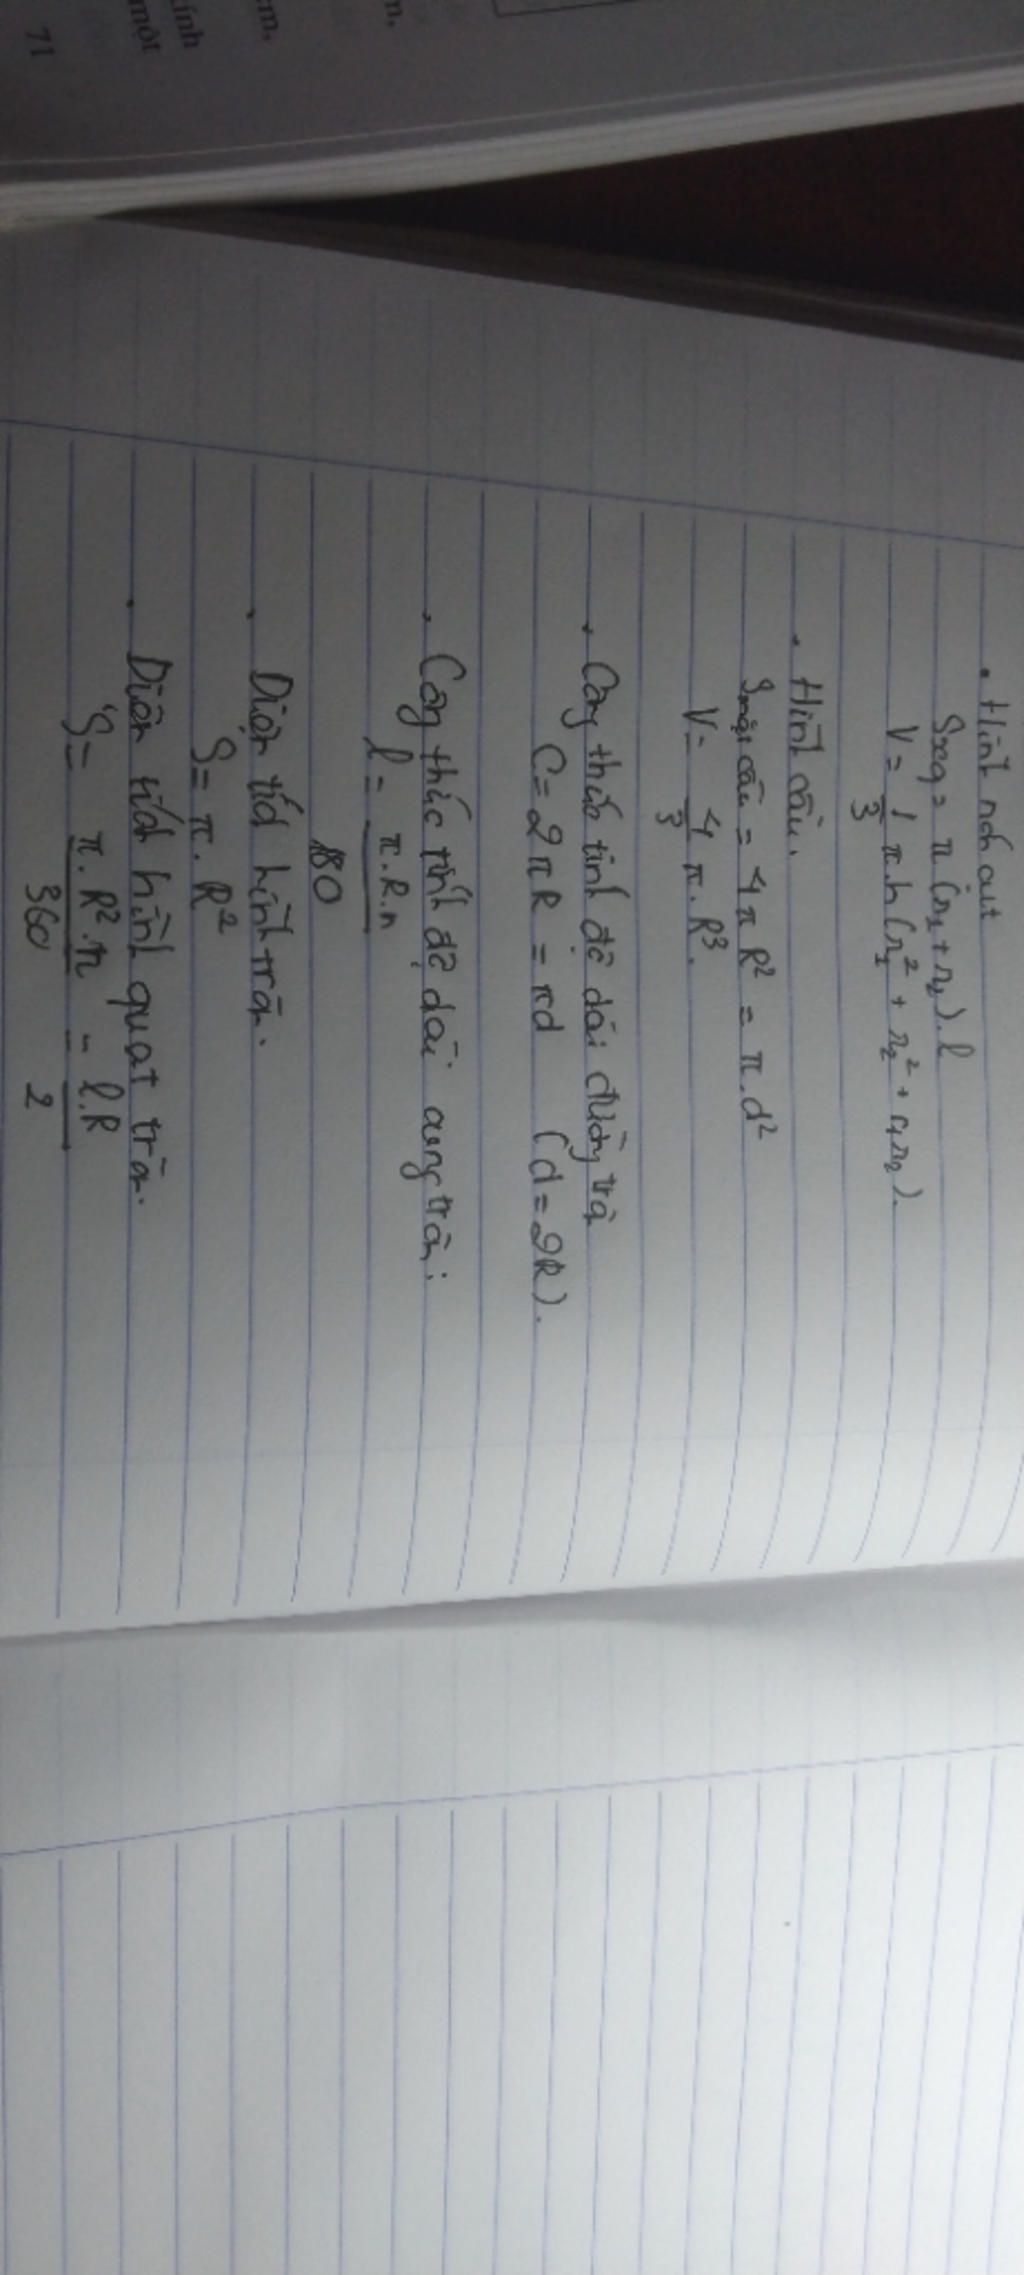 . Hình nón cụt
Sxq = π (r₁ + r₂). l
V = 1/3 π.h (r₁² + r₂² + r₁r₂).
. Hình cầu.
Smặt cầu = 4πR² = π.d²
V = 4/3 π.R³.
. Công thức tính độ dài đường tròn
C = 2πR = πd (d = 2R).
. Công thức tính độ dài cung tròn:
l = π.R.n / 180
. Diện tích hình tròn.
S = π.R²
. Diện tích hình quạt tròn.
S = π.R².n / 360 = l.R / 2
m,
cm,
ính
một
71